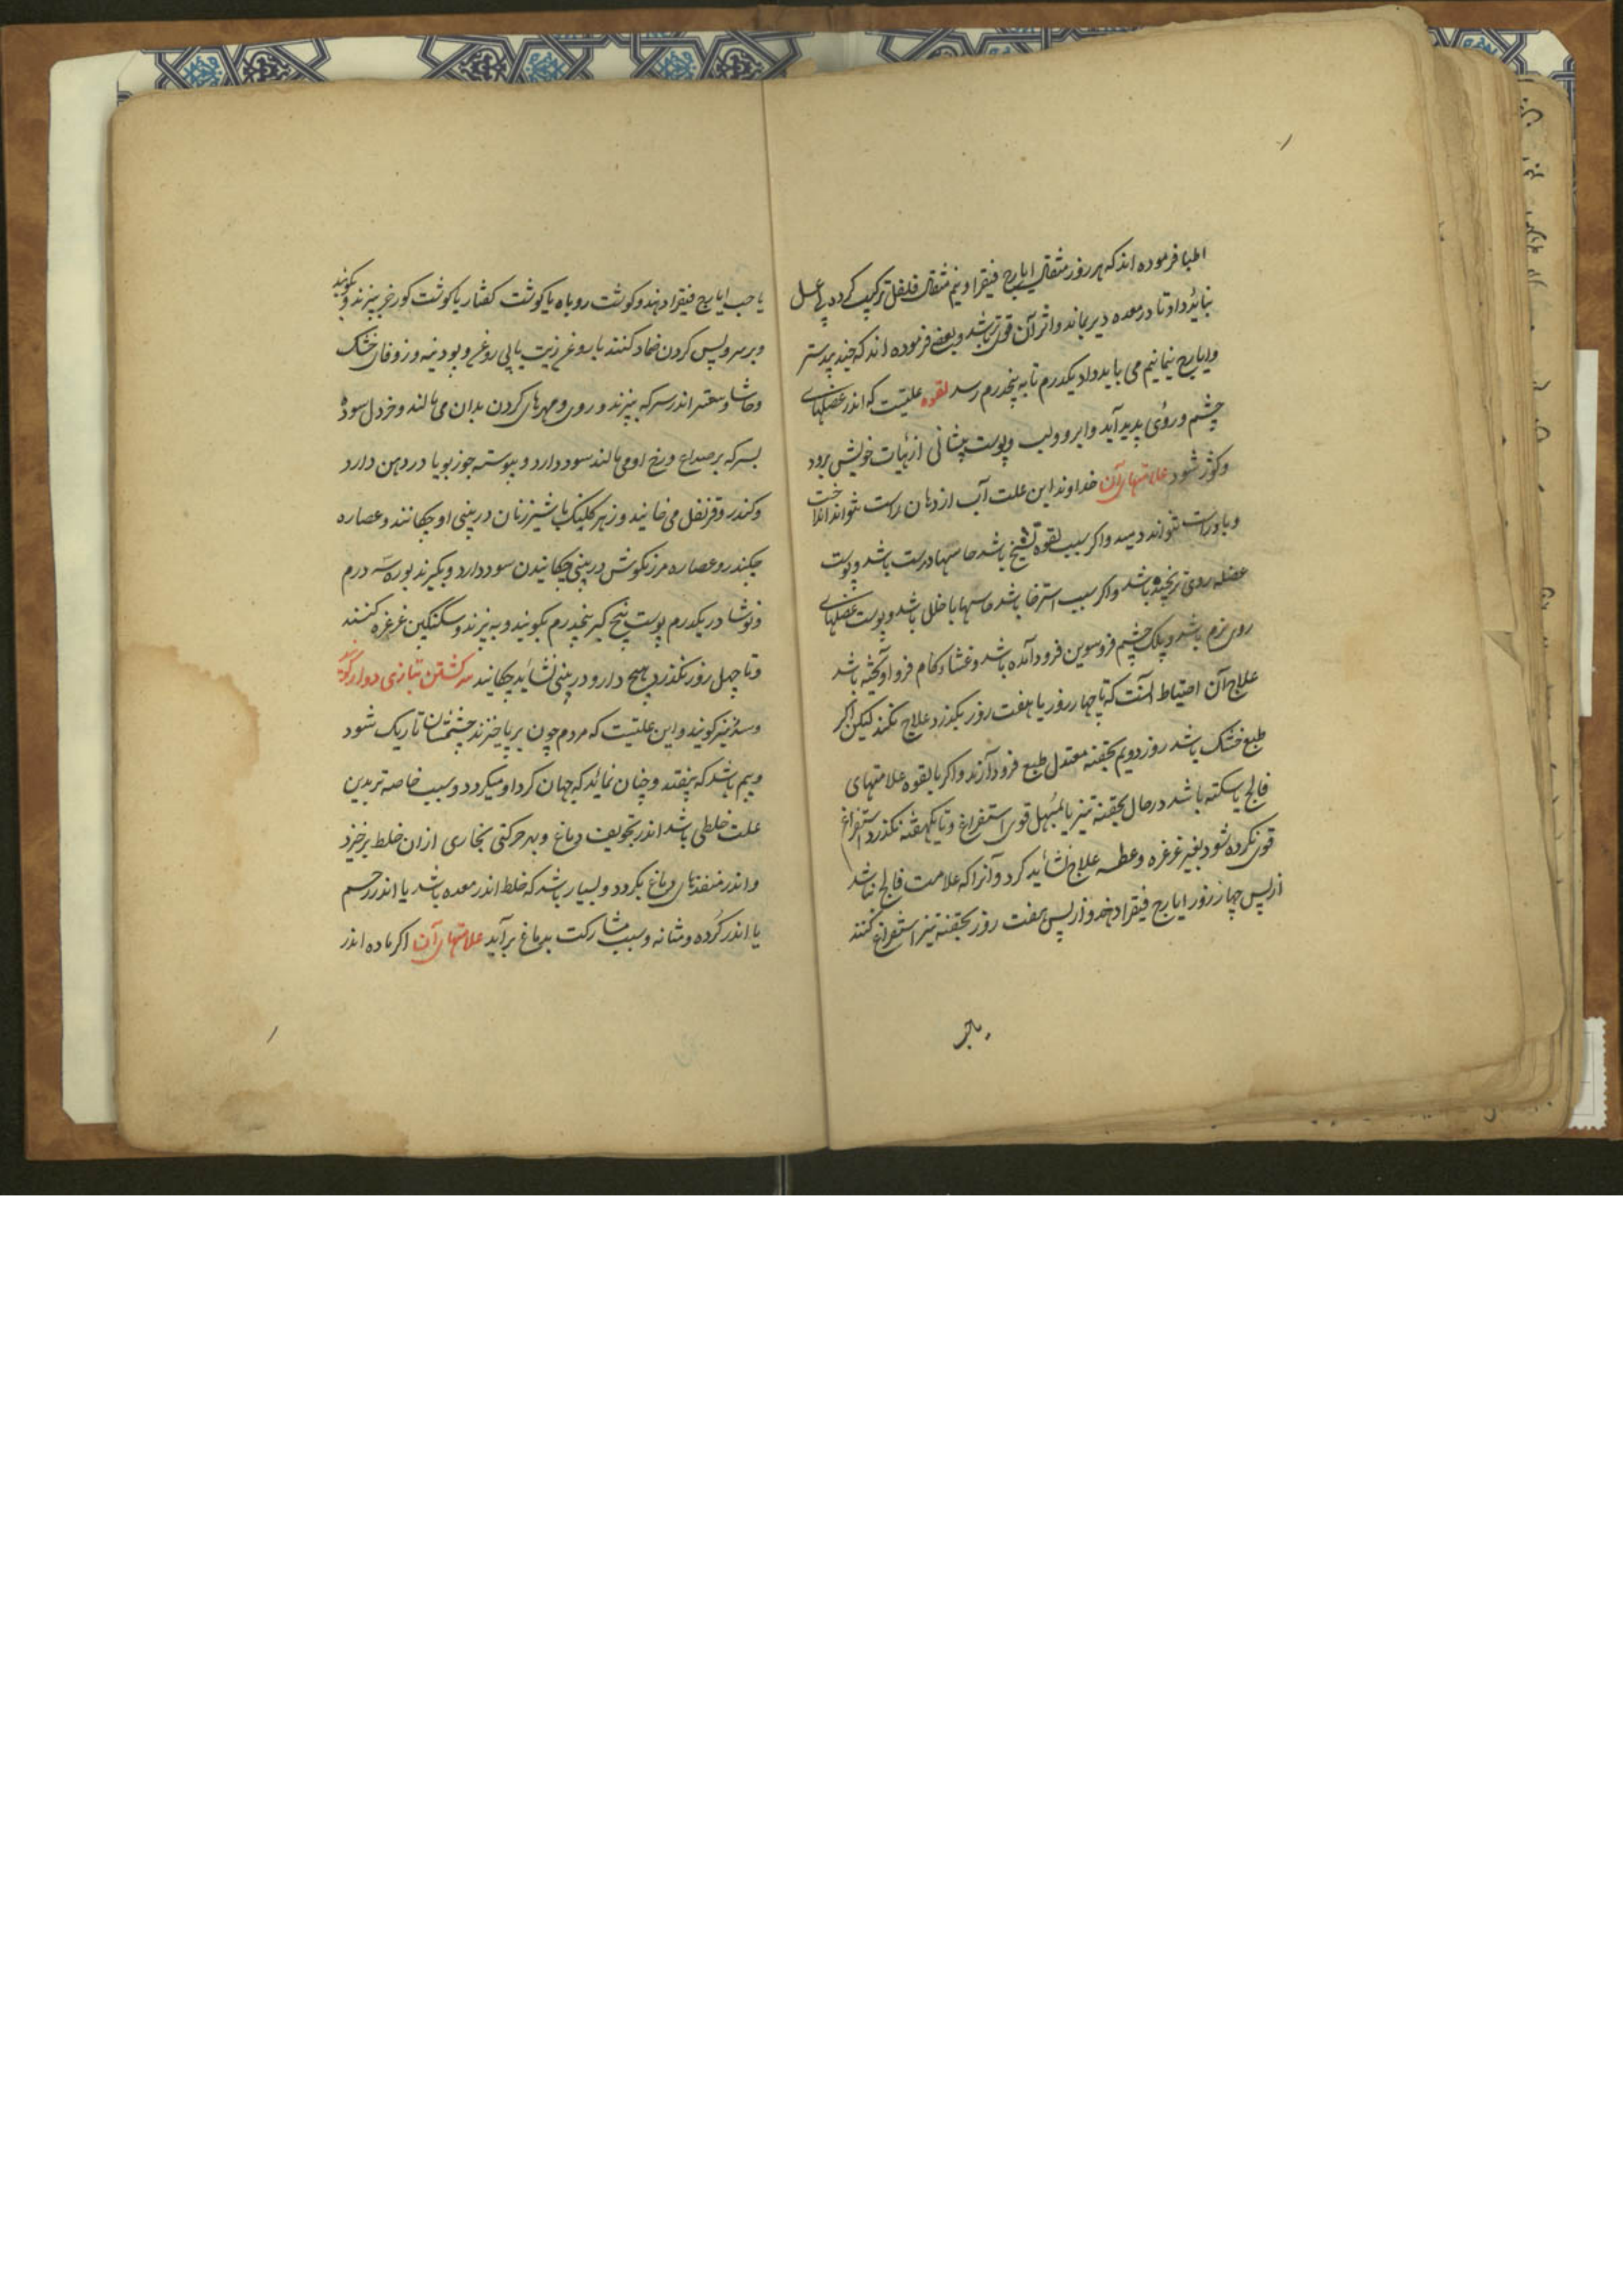 اطبا فرموده اند که هر روز مثقالی ایارج فیقرا و نیم مثقال فلفل ترکیب کرده بی عسل
بباید داد تا در معده دیر بماند و اثر آن قوی تر باشد و بعضی فرموده اند که جندبیدستر
و ایارج نیمانیم می باید داد یکدرم تا به پنجدرم رسد لقوه علتیست که اندر عضلهای
چشم و روی پدید آید و ابرو و لب و پوست پیشانی از هیات خویش برود
و کوژ شود علامتهای آن خداوند این علت آب از دهان راست نتواند انداخت
و باد راست نتواند دمید و اگر سبب لقوه تشنج باشد حاسها درست باشد و پوست
عضله روی ترنجیده باشد و اگر سبب استرخا باشد حاسها با خلل باشد و پوست عضلهای
روی نرم باشد و پلک چشم فروسوین فرود آمده باشد و غشاء کام فرو آویخته باشد
علاج آن احتیاط آنست که تا چهار روز یا هفت روز بگذرد علاج نکنند لیکن اگر
طبع خشک باشد روز دویم بحقنه معتدل طبع فرود آرند و اگر با لقوه علامتهای
فالج یا سکته باشد در حال بحقنه تیز یا بمسهل قوی استفراغ و تا یکهفته نگذرد استفراغ
قوی نکرده شود بغیر غرغره و عطسه علاج نشاید کرد و آنرا که علامت فالج نباشد
از پس چهار روز ایارج فیقرا دهند و از پس هفت روز بحقنه تیز استفراغ کنند
یا حب ایارج فیقرا دهند و کوشت روباه یا کوشت کفتار یا کوشت کورخر بپزند و بکوبند
و بر سر و پس کردن ضماد کنند با روغن زیت یا بی روغن و پودینه و زوفای خشک
و حاشا و سعتر اندر سرکه بپزند و روی و مهرهای کردن بدان می مالند و خردل سوده
بسرکه بر صداع و رخ او می مالند سود دارد و پیوسته جوز بویا در دهن دارد
و کندر و قرنفل می خایند و زهر کلنک با شیر زنان در بینی او چکانند و عصاره
چکندر و عصاره مرزنکوش در بینی چکانیدن سود دارد و بکیرند بوره سه درم
و نوشادر یکدرم پوست بیخ کبر پنجدرم بکوبند و به پزند و سکنکبین غرغره کنند
و تا چهل روز نکذرد هیچ دارو در بینی نشاید چکانید سر کشتن بتازی دوار کویند
و سدر نیز کویند و این علتیست که مردم چون بر پا خیزند چشمشان تاریک شود
و بیم باشد که بیفتند و چنان نماید که جهان کرد او میکردد و سبب خاصه تر بدین
علت خلطی باشد اندر تجویف دماغ و بهر حرکتی بخاری از ان خلط برخیزد
و اندر منفذهای دماغ بکردد و بسیار باشد که خلط اندر معده باشد یا اندر رحم
یا اندر کرده و مثانه و سبب مشارکت بدماغ برآید علامتهای آن اکر ماده اندر